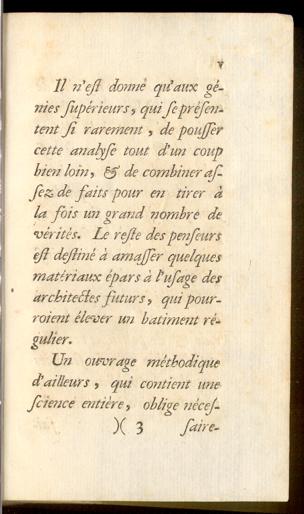 v
Il n'eſt donné qu'aux gé-
nies ſupérieurs, qui ſe préſen-
tent ſi rarement, de pouſſer
cette analyſe tout d'un coup
bien loin, & de combiner aſ-
ſez de faits pour en tirer à
la fois un grand nombre de
vérités. Le reſte des penſeurs
eſt deſtiné à amaſſer quelques
matériaux épars à l'uſage des
architectes futurs, qui pour-
roient élever un batiment ré-
gulier.
Un ouvrage méthodique
d'ailleurs, qui contient une
ſcience entière, oblige néceſ-
)( 3 ſaire-